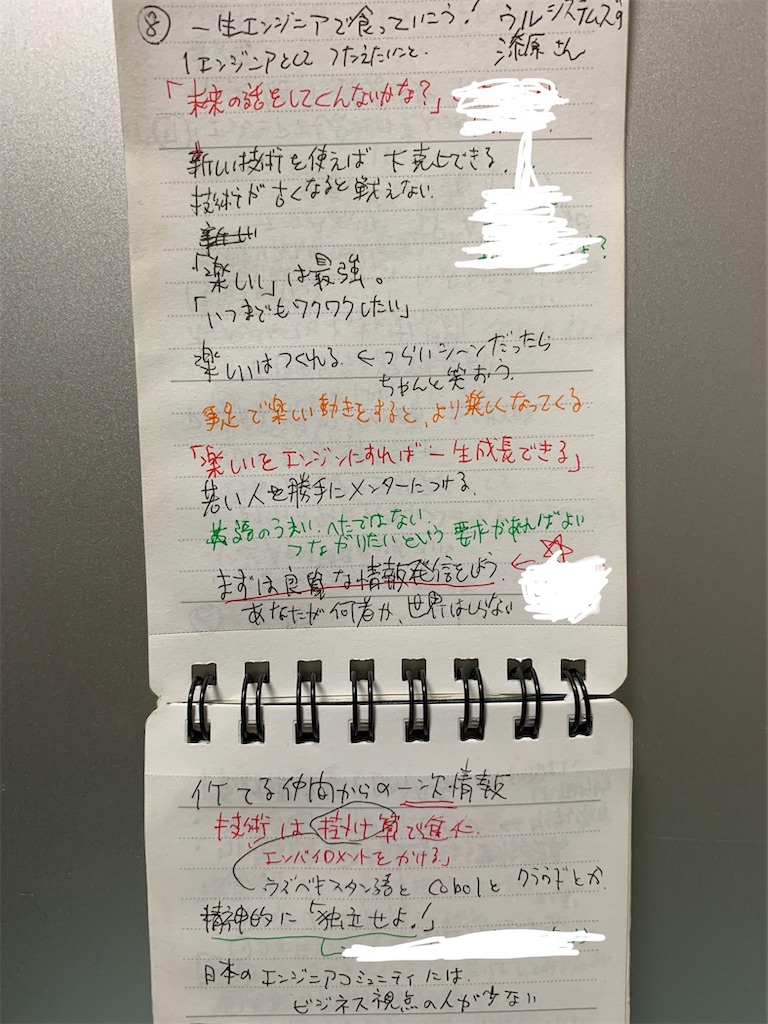 ⑧ 一生エンジニアで食っていこう! ウルシステムズ
漆原さん
1エンジニアとして つたえたいこと.
「未来の話をしてくんないかな?」
新しい技術を使えば 下克上できる.
技術が古くなると戦えない.
新しい
「楽しい」は最強。
「いつまでもワクワクしたい」
楽しいはつくれる. ← つらいシーンだったら
ちゃんと笑おう.
で楽しい動きをすると、より楽しくなってくる.
「楽しいをエンジンにすれば一生成長できる」
若い人を勝手にメンターにつける.
英語のうまい、へたではない.
つながりたいという 要求があればよい
まずは良質な情報発信をしよう. ← ☆
あなたが何者か、世界はしらない
?
イケてる仲間からの一次情報
技術は掛け算で進化.
エンバイロメントをかける」
ウズベキスタン語と Cobolと クラウドとか
精神的に「独立せよ!」
日本のエンジニアコミュニティには、
ビジネス視点の人が少ない